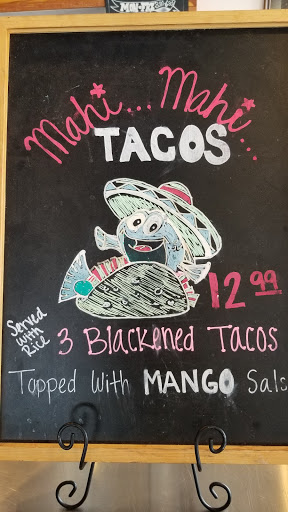 Mahi... Mahi...
TACOS
12.99
Served
with
Rice
3 Blackened Tacos
Topped With MANGO Sals